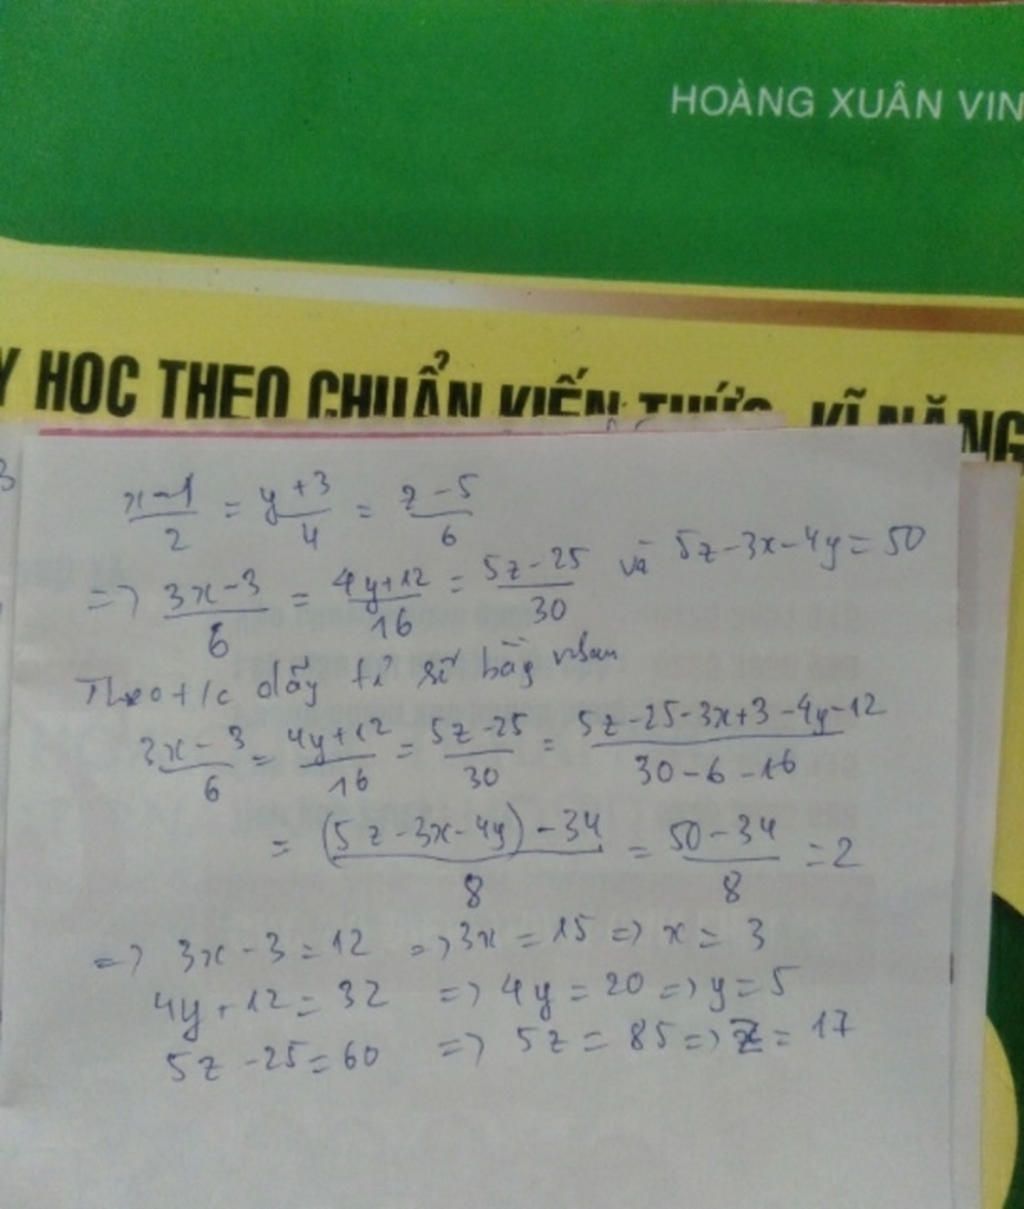 HOÀNG XUÂN VIN
Y HỌC THEO CHUẨN KIẾN THỨC, KĨ NĂNG
3
x-1/2 = y+3/4 = z-5/6
=> 3x-3/6 = 4y+12/16 = 5z-25/30 và 5z-3x-4y=50
Theo t/c dãy tỉ số bằng nhau
3x-3/6 = 4y+12/16 = 5z-25/30 = 5z-25-3x+3-4y-12/30-6-16
= (5z-3x-4y)-34/8 = 50-34/8 = 2
=> 3x-3=12 => 3x=15 => x=3
4y+12=32 => 4y=20 => y=5
5z-25=60 => 5z=85 => z=17